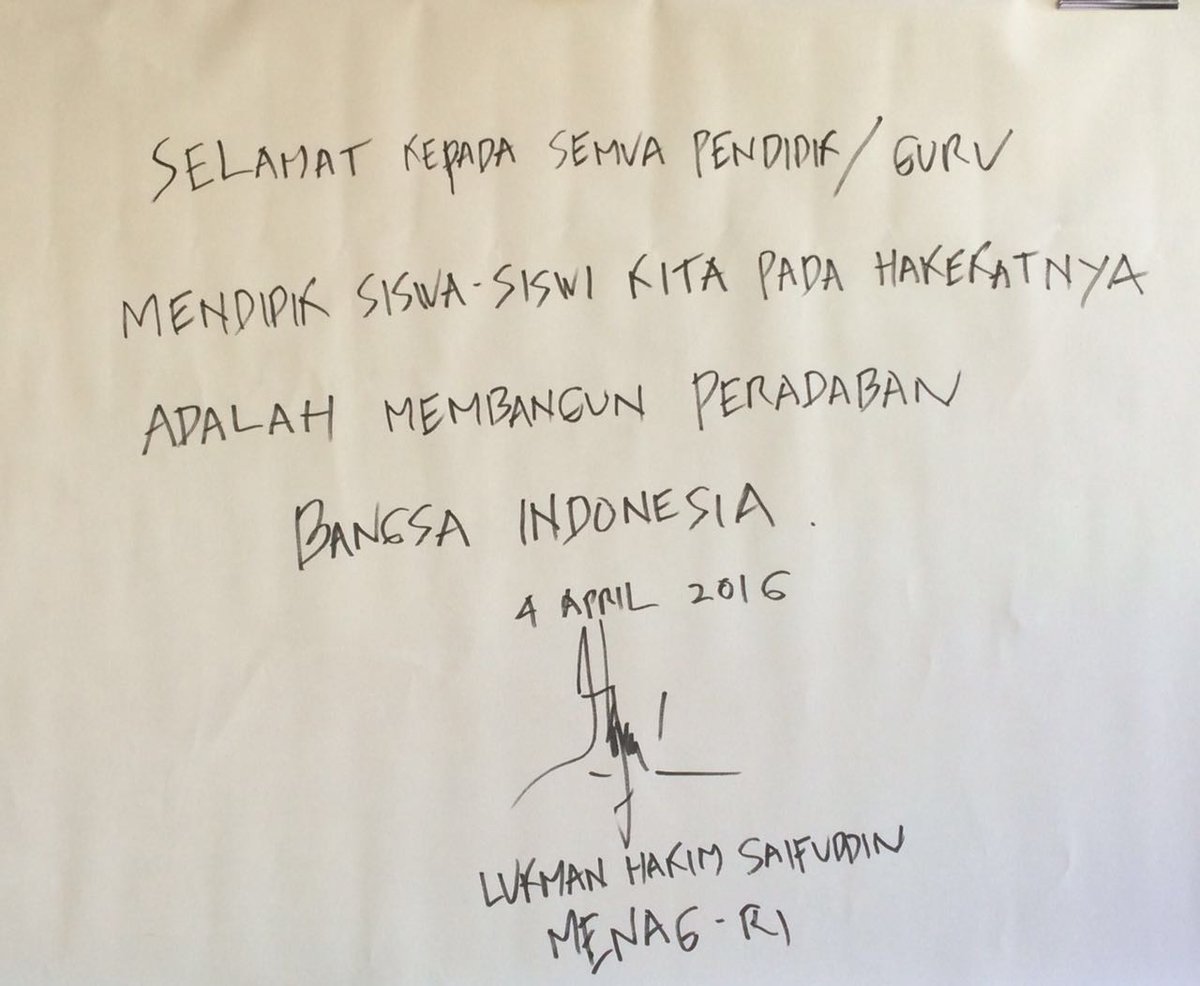 SELAMAT KEPADA SEMUA PENDIDIK/GURU
MENDIDIK SISWA-SISWI KITA PADA HAKEKATNYA
ADALAH MEMBANGUN PERADABAN
BANGSA INDONESIA.
4 APRIL 2016
LUKMAN HAKIM SAIFUDDIN
MENAG-RI